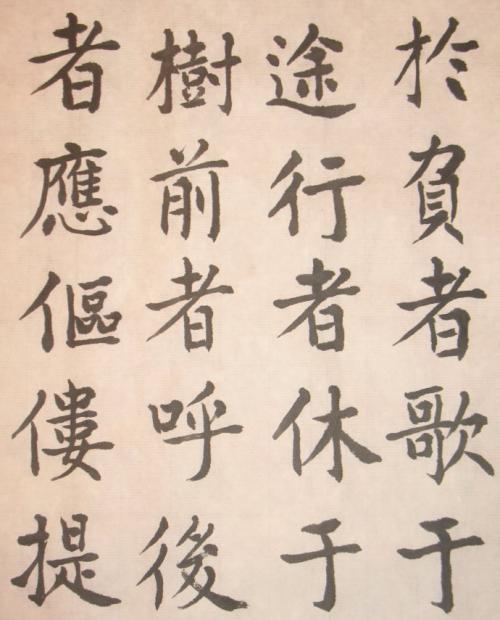 於負者歌于
途行者休于
樹前者呼後
者應傴僂提